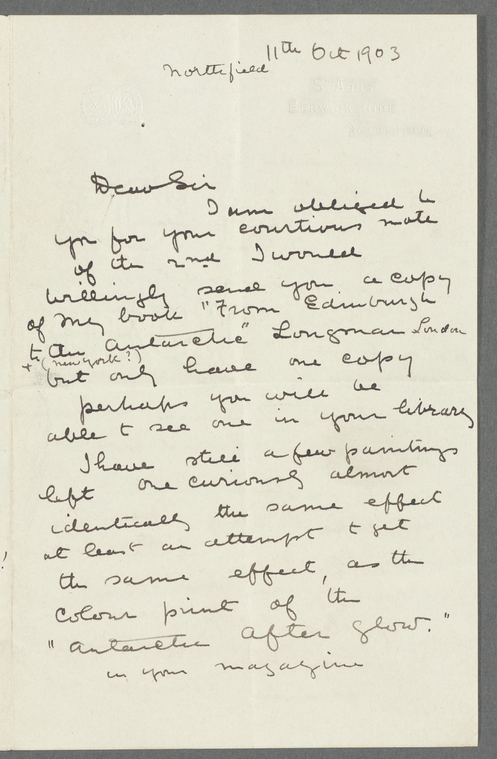 11th Oct 1903
Northfield
Dear Sir
I am obliged to
you for your courtious note
of the 2nd I would
willingly send you a copy
of my book "From Edinburgh
to the Antarctic" Longman London
+ (New York?)
but only have one copy
perhaps you will be
able to see one in your library
I have still a few paintings
left one curiously almost
identically the same effect
at least an attempt to get
the same effect, as the
colour print of the
"Antarctic After glow."
in your magazine